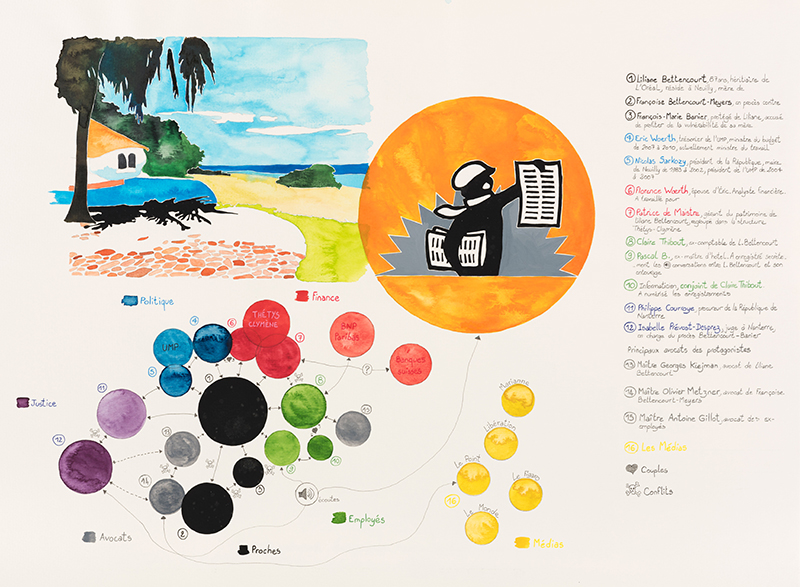 ① Liliane Bettencourt, 87 ans, héritière de
L'Oréal, réside à Neuilly, mère de
② Françoise Bettencourt-Meyers, en procès contre
③ François-Marie Banier, protégé de Liliane, accusé
de profiter de la vulnérabilité de sa mère.
④ Eric Woerth, trésorier de l'UMP, ministre du budget
de 2007 à 2010, actuellement ministre du travail
⑤ Nicolas Sarkozy, président de la République, maire
de Neuilly de 1983 à 2002, président de l'UMP de 2004
à 2007
⑥ Florence Woerth, épouse d'Eric. Analyste financière.
A travaillé pour
⑦ Patrice de Maistre, gérant du patrimoine de
Liliane Bettencourt, regroupé dans la structure
Thétys-Clymène
⑧ Claire Thibout, ex-comptable de L. Bettencourt
⑨ Pascal B., ex-maître d'hôtel. A enregistré
les conversations entre L. Bettencourt et son
entourage
⑩ Informaticien, conjoint de Claire Thibout
A numérisé les enregistrements
⑪ Philippe Courroye, procureur de la République de
Nanterre
⑫ Isabelle Prévost-Desprez, juge à Nanterre,
en charge du procès Bettencourt-Banier
Principaux avocats des protagonistes
⑬ Maître Georges Kiejman, avocat de Liane
Bettencourt
⑭ Maître Olivier Metzner, avocat de Françoise
Bettencourt-Meyers
⑮ Maître Antoine Gillot, avocat des ex-
employés
⑯ Les Médias
Couples
Conflits
Politique
Finance
THÉTYS
CLYMÈNE
BNP
Paribas
UMP
Banques
suisses
?
④
⑥
⑦
⑤
①
⑧
⑪
⑬
⑮
⑫
⑨
⑩
⑭
③
②
⑯
Justice
Marianne
Libération
Le Point
Le Figaro
Le Monde
écoutes
Employés
Avocats
Proches
Médias